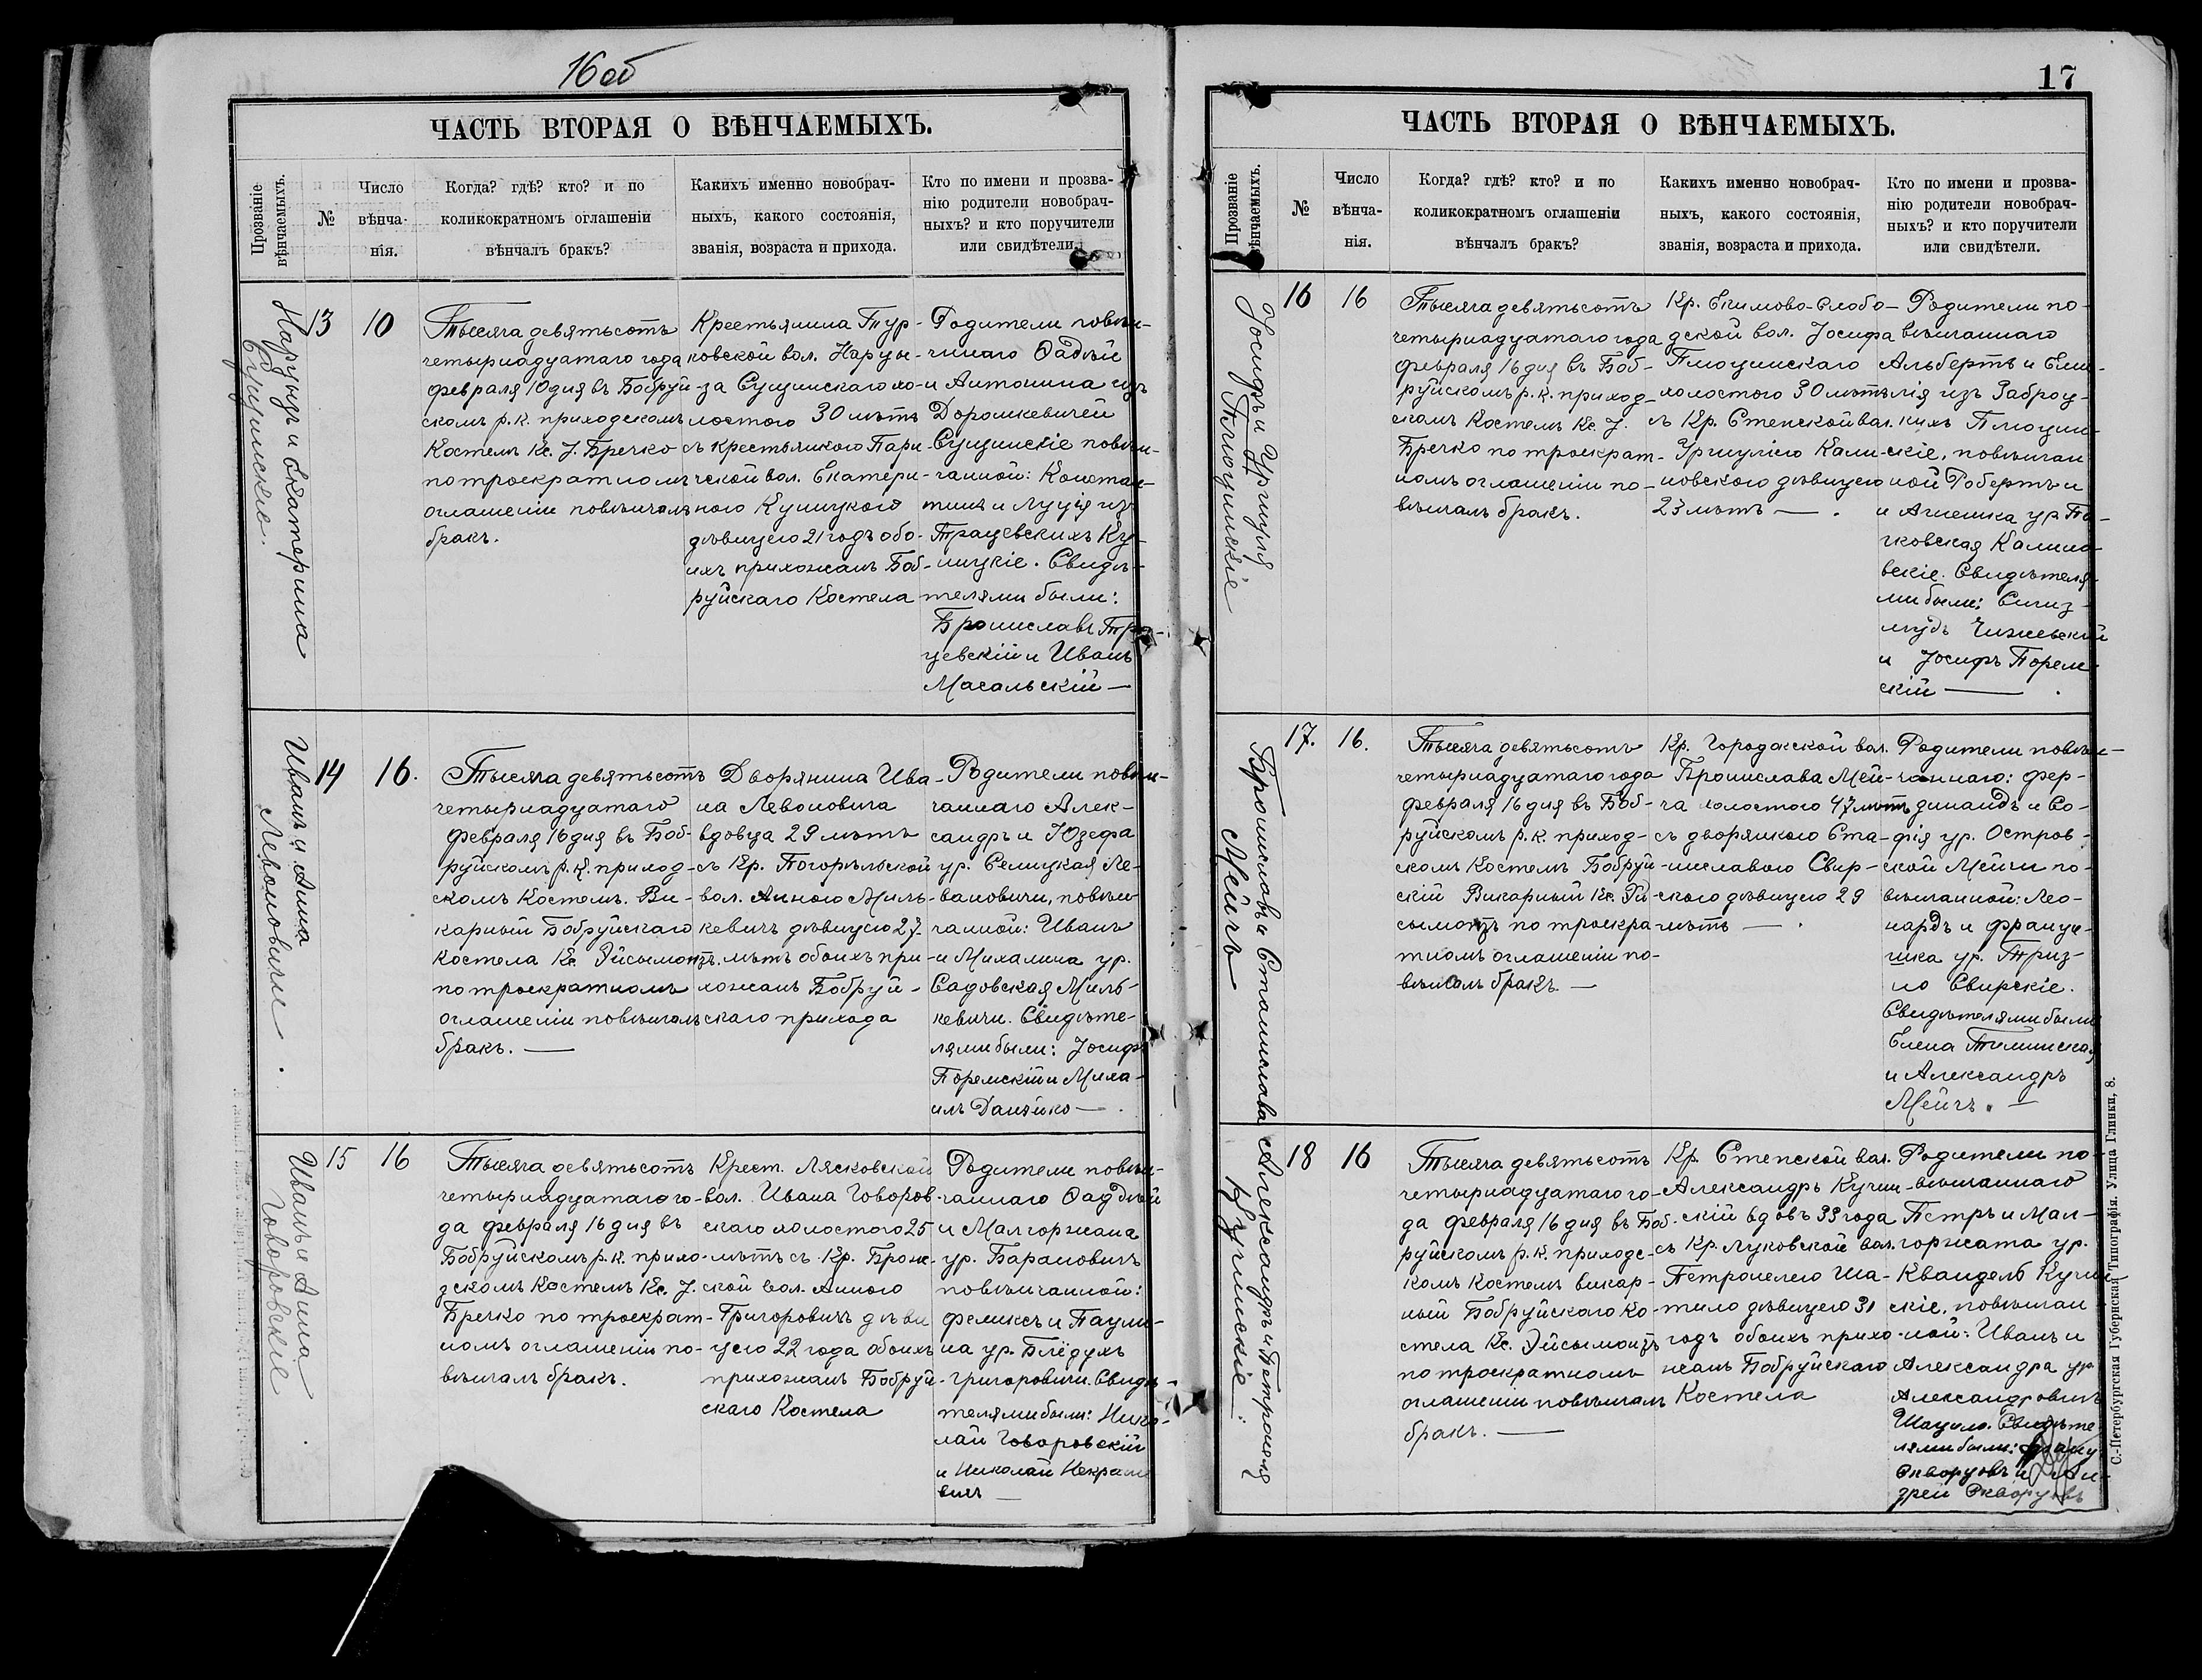 16 об
ЧАСТЬ ВТОРАЯ О ВѢНЧАЕМЫХЪ.
Прозваніе
вѣнчаемыхъ.
№
Число
вѣнча-
нія.
Когда? гдѣ? кто? и по
коликократномъ оглашеніи
вѣнчалъ бракъ?
Какихъ именно новобрач-
ныхъ, какого состоянія,
званія, возраста и прихода.
Кто по имени и прозва-
нію родители новобрач-
ныхъ? и кто поручители
или свидѣтели.
Нарцызъ и Екатерина
13
10
Тысяча девятьсотъ
четырнадцатаго года
февраля 10 дня въ Бобруй-
скомъ р. к. приходскомъ
Костелѣ Кс. J. Бречко
по троекратномъ
оглашеніи повѣнчалъ
бракъ.
Крестьянина Тур-
ковской вол. Нарцы-
за Сущинскаго хо-
лостого 30 лѣтъ
съ крестьянкою Пари-
чской вол. Екатери-
ною Куницкою
дѣвицею 21 годъ обо-
ихъ прихожанъ Боб-
руйскаго Костела
Родители повѣн-
чаннаго Ѳадѣй
и Антонина изъ
Дорошкевичей
Сущинскіе повѣн-
чанной: Констан-
тинъ и Луція изъ
Трацевскихъ Ку-
ницкіе. Свидѣ-
телями были:
Брониславъ Тра-
цевскій и Иванъ
Масальскій —
Иванъ и Анна
Левоновичи.
14
16.
Тысяча девятьсотъ
четырнадцатаго
февраля 16 дня въ Боб-
руйскомъ р. к. приход-
скомъ Костелѣ. Ви-
карный Бобруйскаго
Костела Кс. Эйсымонтъ.
по троекратномъ
оглашеніи повѣнчалъ
бракъ. —
Дворянина Ива-
на Левоновича
вдовца 29 лѣтъ
съ Кр. Погорѣльской
вол. Анною Миль-
кевичъ дѣвицею 27
лѣтъ обоихъ при-
хожанъ Бобруй-
скаго прихода
Родители повѣн-
чаннаго Алек-
сандръ и Юзефа
ур. Селицкая Ле-
вановичи, повѣн-
чанной: Иванъ
и Михалина ур.
Садовская Миль-
кевичи. Свидѣте-
лями были: Jосифъ
Поремскій и Миха-
илъ Данейко —.
Иванъ и Анна
Говоровскіе
15
16
Тысяча девятьсотъ
четырнадцатаго го-
да февраля 16 дня въ
Бобруйскомъ р. к. прихо-
дскомъ Костелѣ Кс. J.
Бречко по троекрат-
номъ оглашеніи по-
вѣнчалъ бракъ.
Крест. Лясковской
вол. Ивана Говоров-
скаго холостого 25
лѣтъ съ Кр. Брож-
ской вол. Анною
Григоровичъ дѣви
цею 22 года обоихъ
прихожанъ Бобруй-
скаго Костела
Родители повѣн-
чаннаго Ѳаддѣй
и Малгоржана
ур. Барановичъ
повѣнчанной:
Феликсъ и Паули-
на ур. Блёдухъ
Григоровичи. Свидѣ-
телями были: Нико-
лай Говоровскій
и Николай Некраше
вичъ —
17
ЧАСТЬ ВТОРАЯ О ВѢНЧАЕМЫХЪ.
Прозваніе
вѣнчаемыхъ.
№
Число
вѣнча-
нія.
Когда? гдѣ? кто? и по
коликократномъ оглашеніи
вѣнчалъ бракъ?
Какихъ именно новобрач-
ныхъ, какого состоянія,
званія, возраста и прихода.
Кто по имени и прозва-
нію родители новобрач-
ныхъ? и кто поручители
или свидѣтели.
Jосифъ и Уршуля
Плющинскіе
16
16
Тысяча девятьсотъ
четырнадцатаго года
февраля 16 дня въ Боб-
руйскомъ р. к. приход-
скомъ Костелѣ Кс. J.
Бречко по троекрат-
номъ оглашеніи по-
вѣнчалъ бракъ.
Кр. Екимово-Слобо-
дской вол. Jосифа
Плющинскаго
холостого 30 лѣтъ
съ Кр. Степской вол.
Уршулією Кали-
новскою дѣвицею
23 лѣтъ —.
Родители по-
вѣнчаннаго
Альбертъ и Еми-
лія изъ Заброц-
кихъ Плющин-
скіе, повѣнчан
ной Робертъ и
и Агнешка ур
чковская Калино-
вскіе. Свидѣтеля-
ми были: Сигиз-
мудъ Чижевскій
и Jосифъ Порем-
скій —.
Брониславъ и Станислава
Мейчъ
17.
16.
Тысяча девятьсотъ
четырнадцатаго года
февраля 16 дня въ Боб-
руйскомъ р. к. приход-
скомъ Костелѣ Бобруй-
скій Викарный Кс. Эй-
сымонтъ по троекра-
тномъ оглашеніи по-
вѣнчалъ бракъ —
Кр. Городокской вол.
Бронислава Мей-
ча холостого 47 лѣтъ
съ дворянкою Ста-
ниславою Свир-
скою дѣвицею 29
лѣтъ —.
Родители повѣн-
чаннаго: Фер-
динандъ и Со-
фія ур. Остров-
ской Мейчи по-
вѣнчанной: Лео-
нардъ и Франци-
шка ур. Триз-
но Свирскіе.
Свидѣтелями были
Елена
и Александръ
Мейчъ. —
Александръ и Петронеля
Кучинскіе.
18
16
Тысяча девятьсотъ
четырнадцатаго го-
да февраля 16 дня въ Боб-
руйскомъ р. к. приходс-
комъ Костелѣ викар-
ный Бобруйскаго Ко-
стела Кс. Эйсымонтъ
по троекратномъ
оглашеніи повѣнчалъ
бракъ. —
Кр. Степской вол.
Александръ Кучин-
скій вдовъ 33 года
съ Кр. Луковской вол.
Петронелею Ша-
тило дѣвицею 31
годъ обоихъ прихо-
жанъ Бобруйскаго
Костела
Родители по-
вѣнчаннаго
Петръ и Мал-
горжата ур.
Квандель Кучин
скіе, повѣнчан
ной: Иванъ и
Александра ур
Александровичъ
Свидѣте
лями были:
Скворцовъ и Ан-
дрей Скворцовъ
С.-Петербургская Губернская Типографія. Улица Глинки, 8.